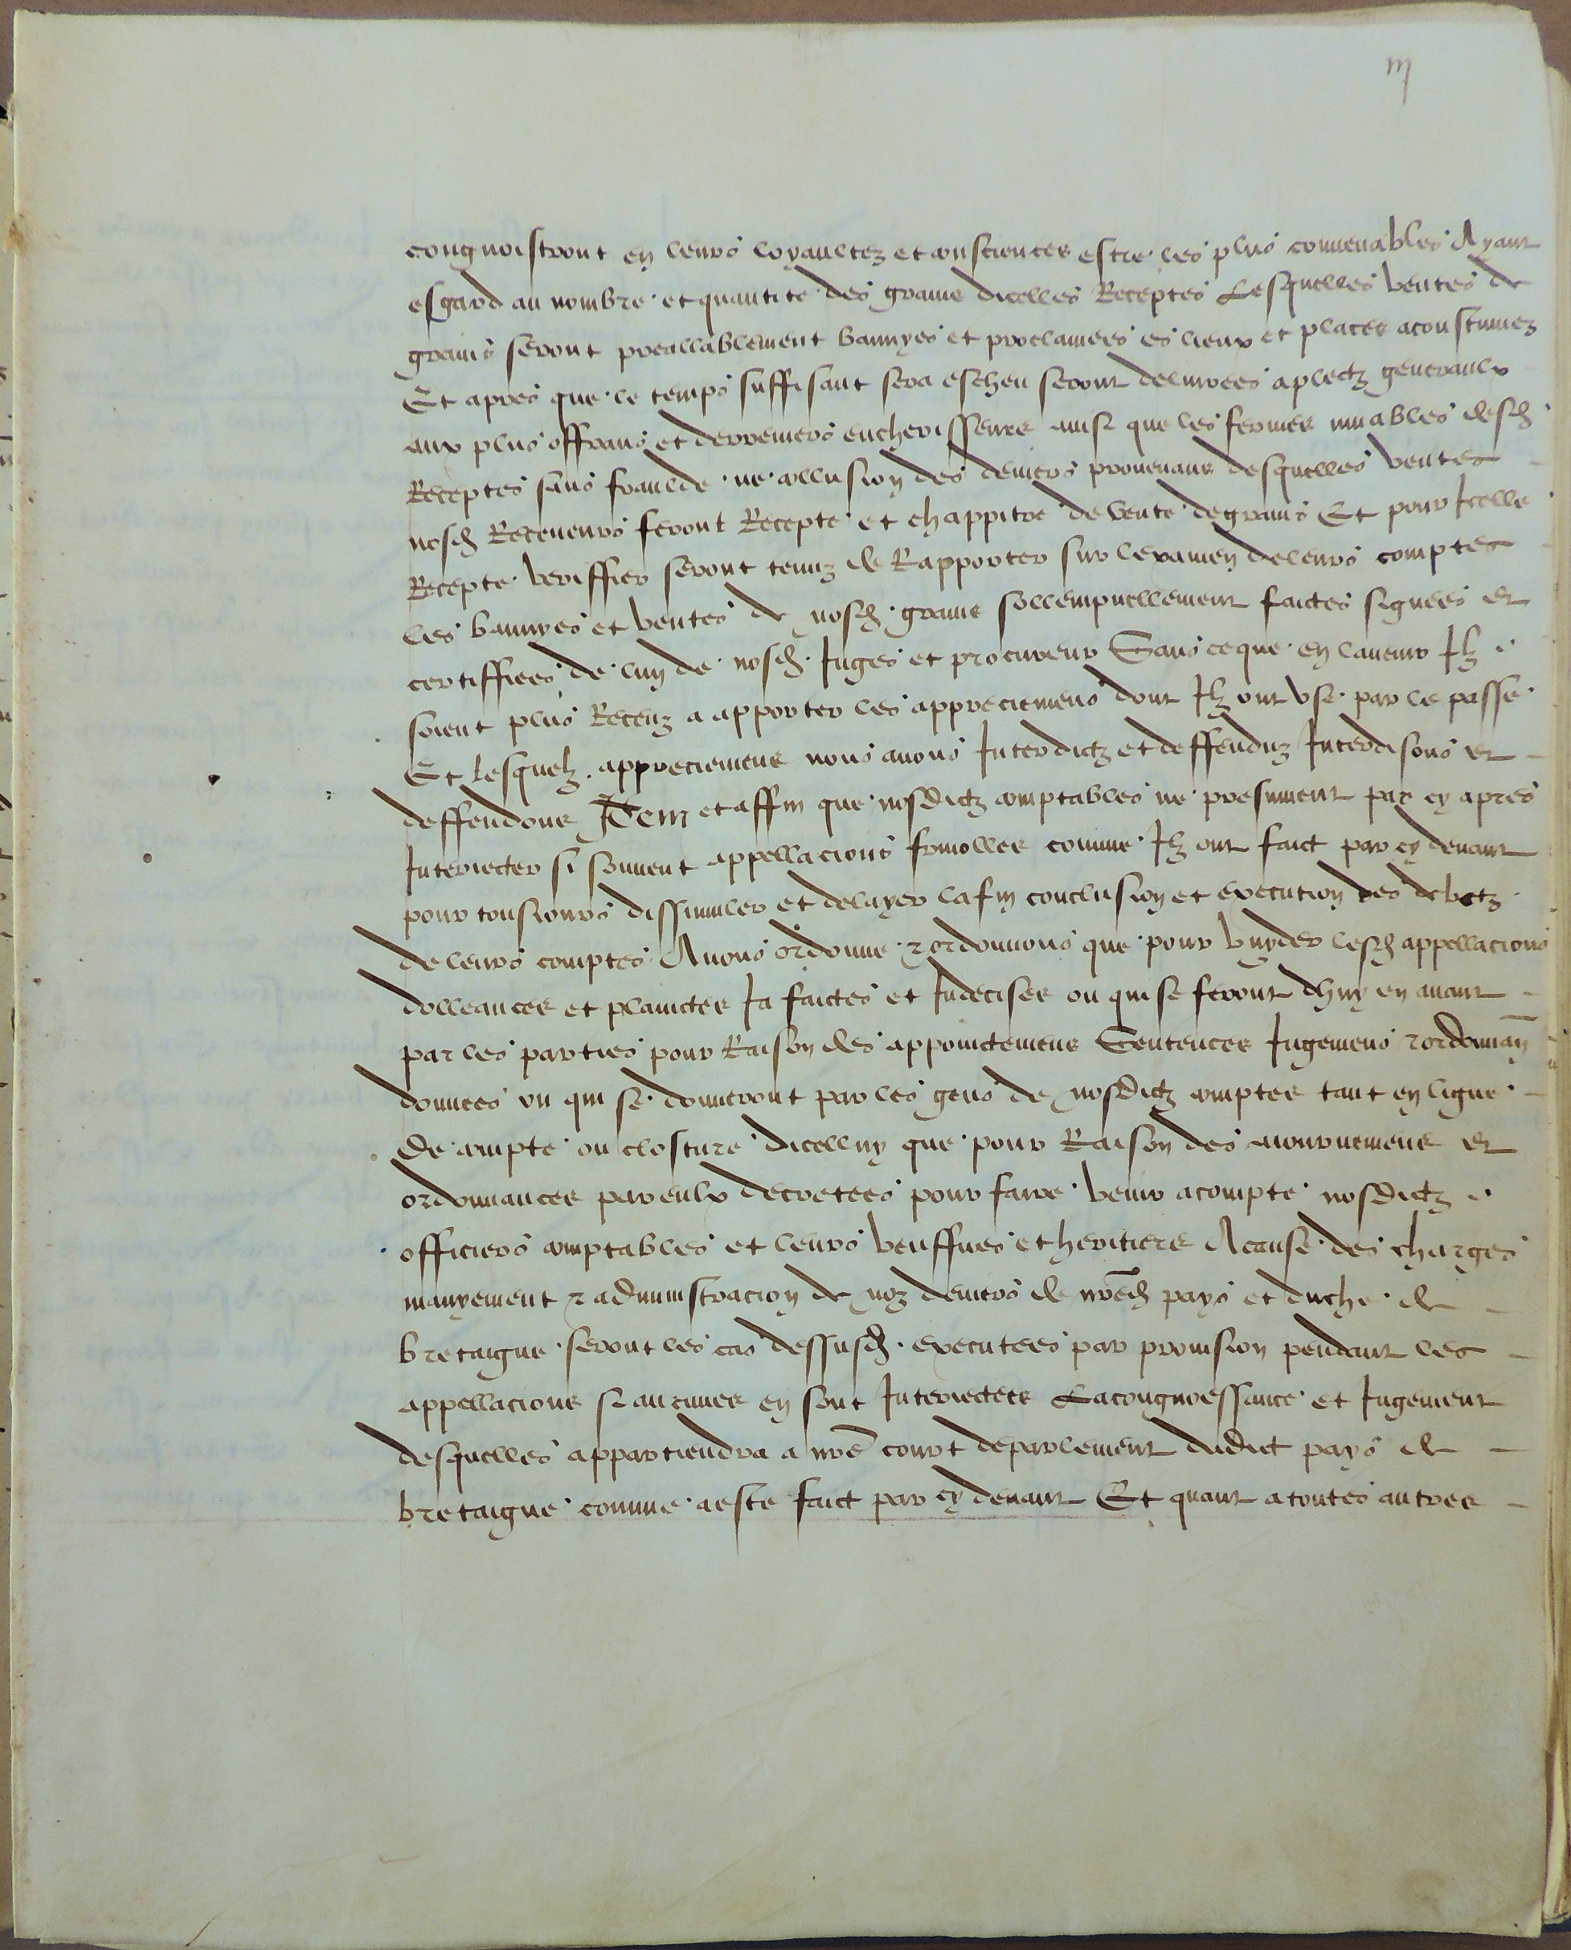 iij
congnoistront en leurs loyaultez et consciences estre les plus convenables Ayant
esgard au nombre et quantite des grains dicelles Receptes Lesquelles ventes de
grains seront preallablement bannyes et proclamees es lieux et places acoustumez
Et apres que le temps suffisant sera escheu seront delivrees a plectz generaulx
aux plus offrans et derreniers encherisseurs ainsi que les fermes muables desd
Receptes sans fraulde ne collusion des deniers provenans desquelles ventes
nosd Receveurs feront Recepte et chappitre de vente de grains Et pour Icelle
Recepte veriffier seront tenuz de Rapporter sur lexamen de leurs comptes
les bannyes et ventes de nosd grains sollempnellement faictes signees et
certiffiees de luy de nosd Juges et procureur Sans ce que en lavenir Ilz
soient plus Receuz a apporter les appreciemens dont Ilz ont use par le passe
Et lesquelz appreciemens nous avons Interdictz et deffenduz Interdisons et
deffendons Item et affin que nosdictz comptables ne presument par cy apres
Interiecter si souvent appellacions frivolles comme Ilz ont faict par cy devant
pour tousiours dissimuler et delayer la fin conclusion et execution des debetz
de leurs comptes Avons ordonne & ordonnons que pour vuyder lesd appellacions
dolleances et plainctes Ja faictes et Indecises ou qui se feront dhuy en avant
par les parties pour Raison des appoinctemens Sentences Jugemens & ordonnan
donnees ou qui se donneront par les gens de nosdictz comptes tant en ligne
de compte ou closture dicelluy que pour Raison des aiournemens et
ordonnances par eulx decretees pour faire venir a compte nosdictz
officiers comptables et leurs veuffves et heritiers A cause des charges
manyement & administracion de noz deniers de nred pays et duche de
bretaigne seront les cas dessusd executees par provision pendant les
appellacions si aucunes en sont Interiectees La congnoessance et Jugement
desquelles appartiendra a nre court de parlement dudict pays de
bretaigne comme a este faict par cy devant Et quant a toutes autres